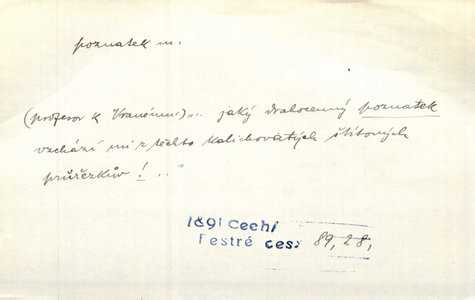 poznatek m.
(profesor k Vranému:) „.. jaký drahocenný poznatek
vzchází mi z těchto kalichovitých štítových
průřezkův! .."
1891 Čech
Pestré ces 89, 28,